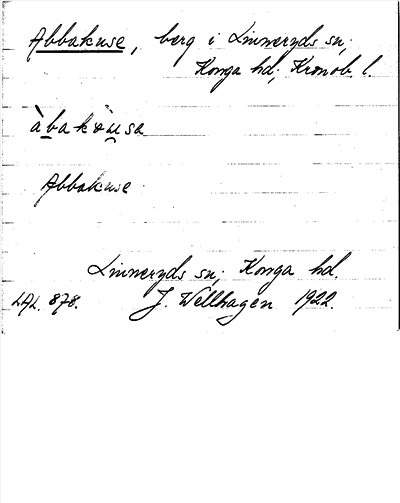 Abbakuse, berg i Linneryds sn,
Konga hd, Kronob. l.
àbakùusa
Abbakuse
Linneryds sn, Konga hd.
LAL. 878. J. Wellhagen 1922.